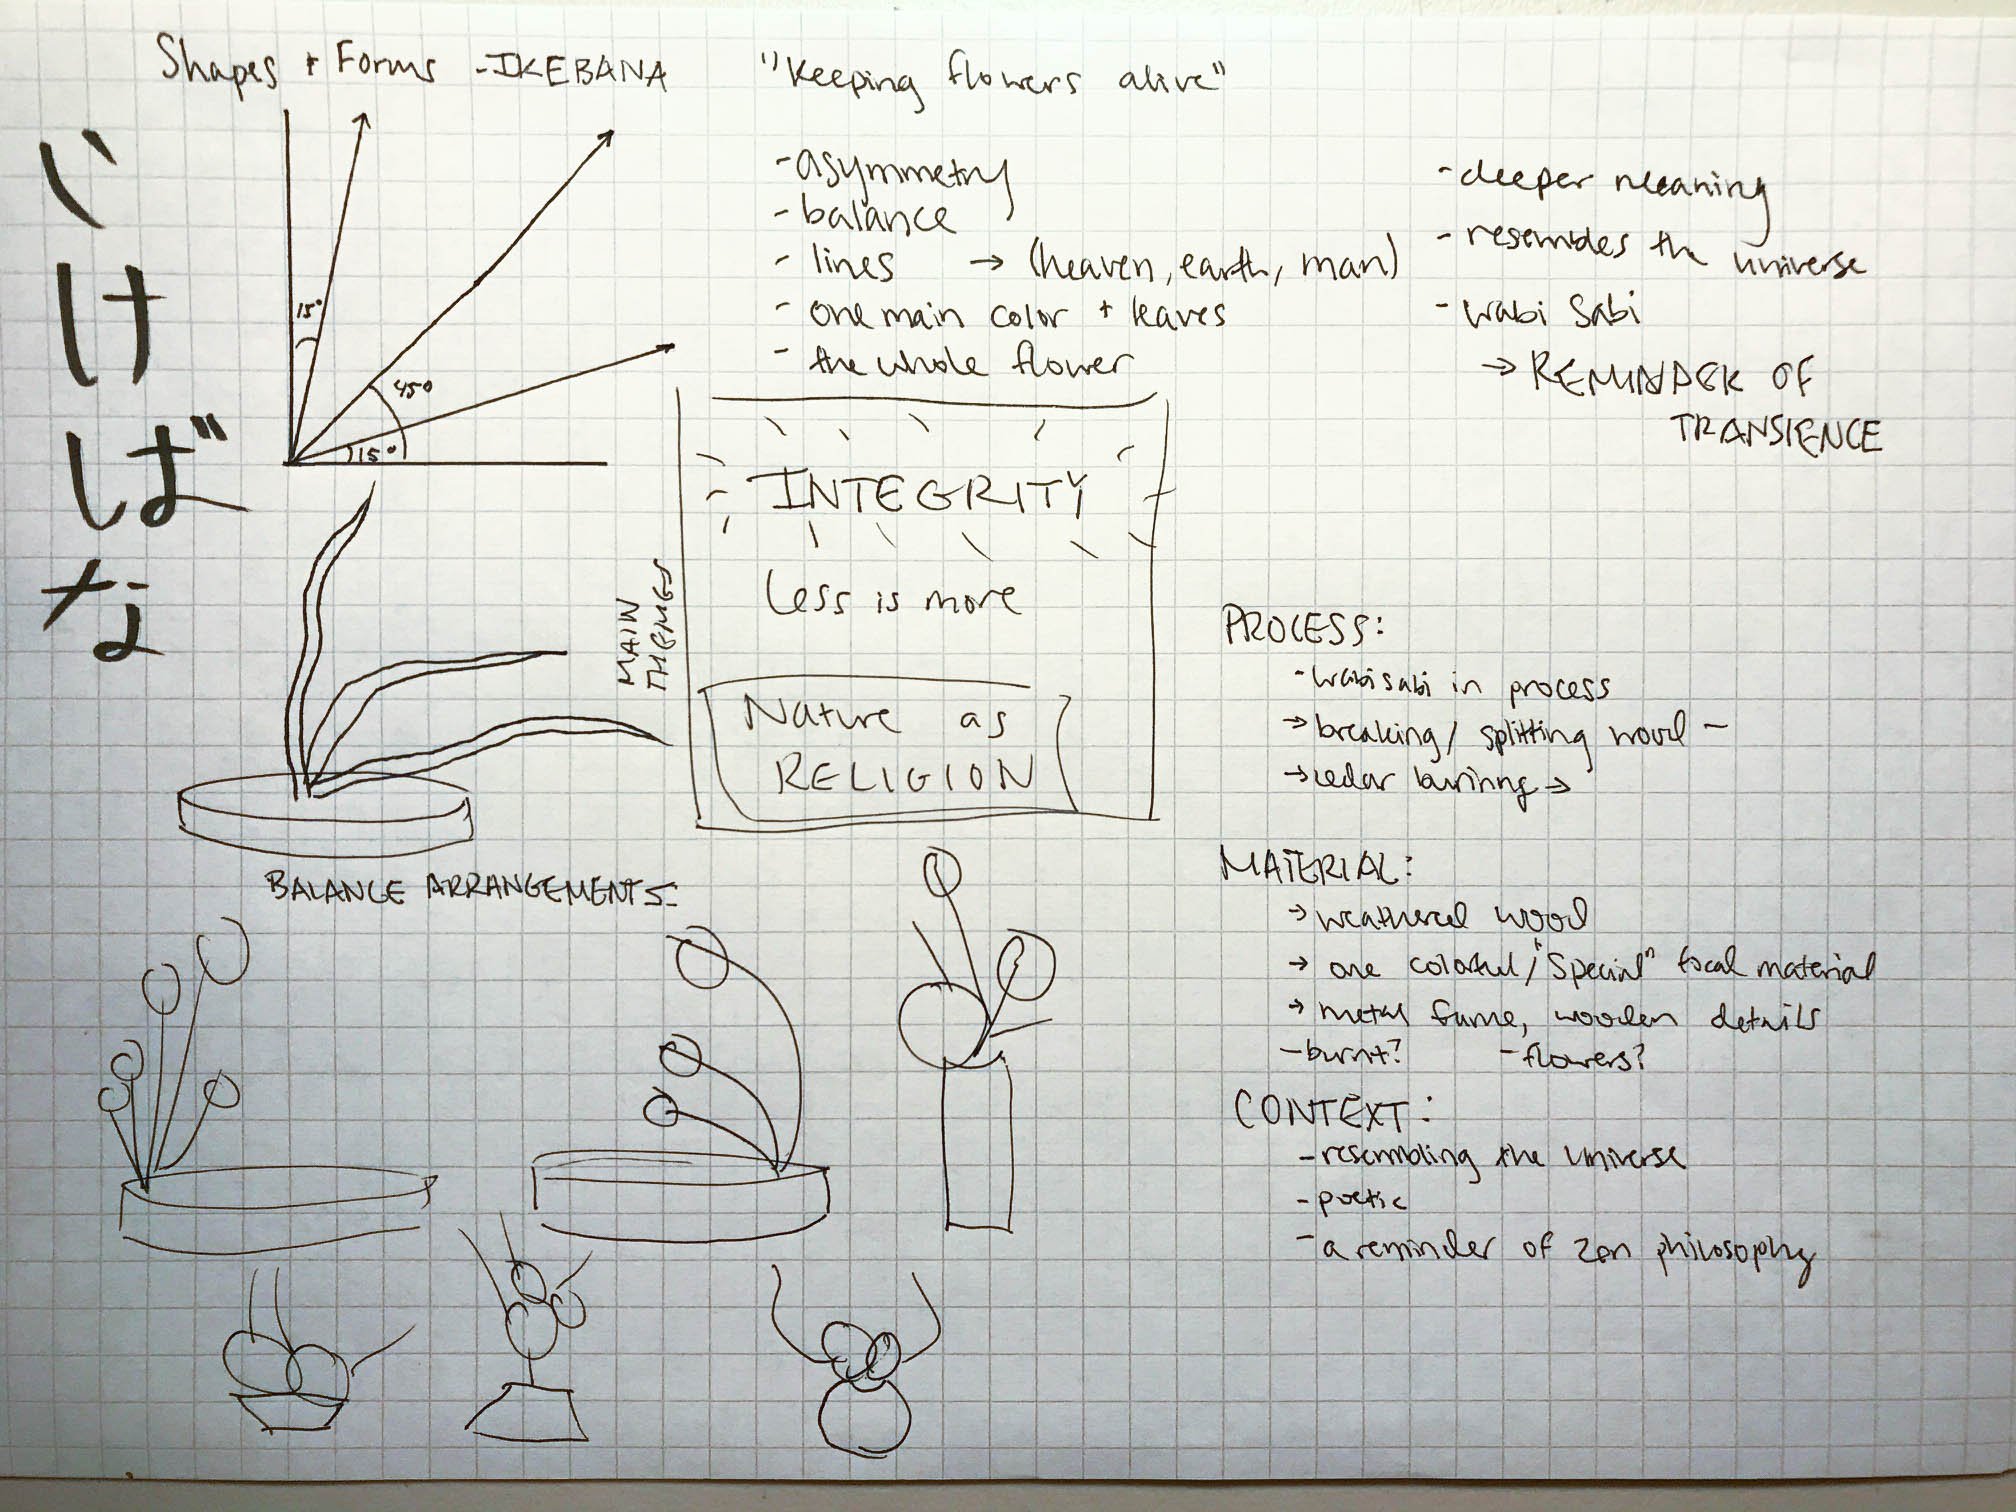 Shapes + Forms - IKEBANA
"Keeping flowers alive"
いけばな
15°
45°
15°
- asymmetry
- balance
- lines → (heaven, earth, man)
- one main color + leaves
- the whole flower
- deeper meaning
- resembles the universe
- wabi sabi
→ REMINDER OF
TRANSIENCE
MAIN
THEMES
INTEGRITY
Less is more
Nature as
RELIGION
BALANCE ARRANGEMENTS:
PROCESS:
- wabi sabi in process
→ breaking / splitting wood -
→ cedar burinng →
MATERIAL:
→ weathered wood
→ one colorful / "special" focal material
→ metal frame, wooden details
- burnt? - flowers?
CONTEXT:
- resembling the universe
- poetic
- a reminder of zen philosophy